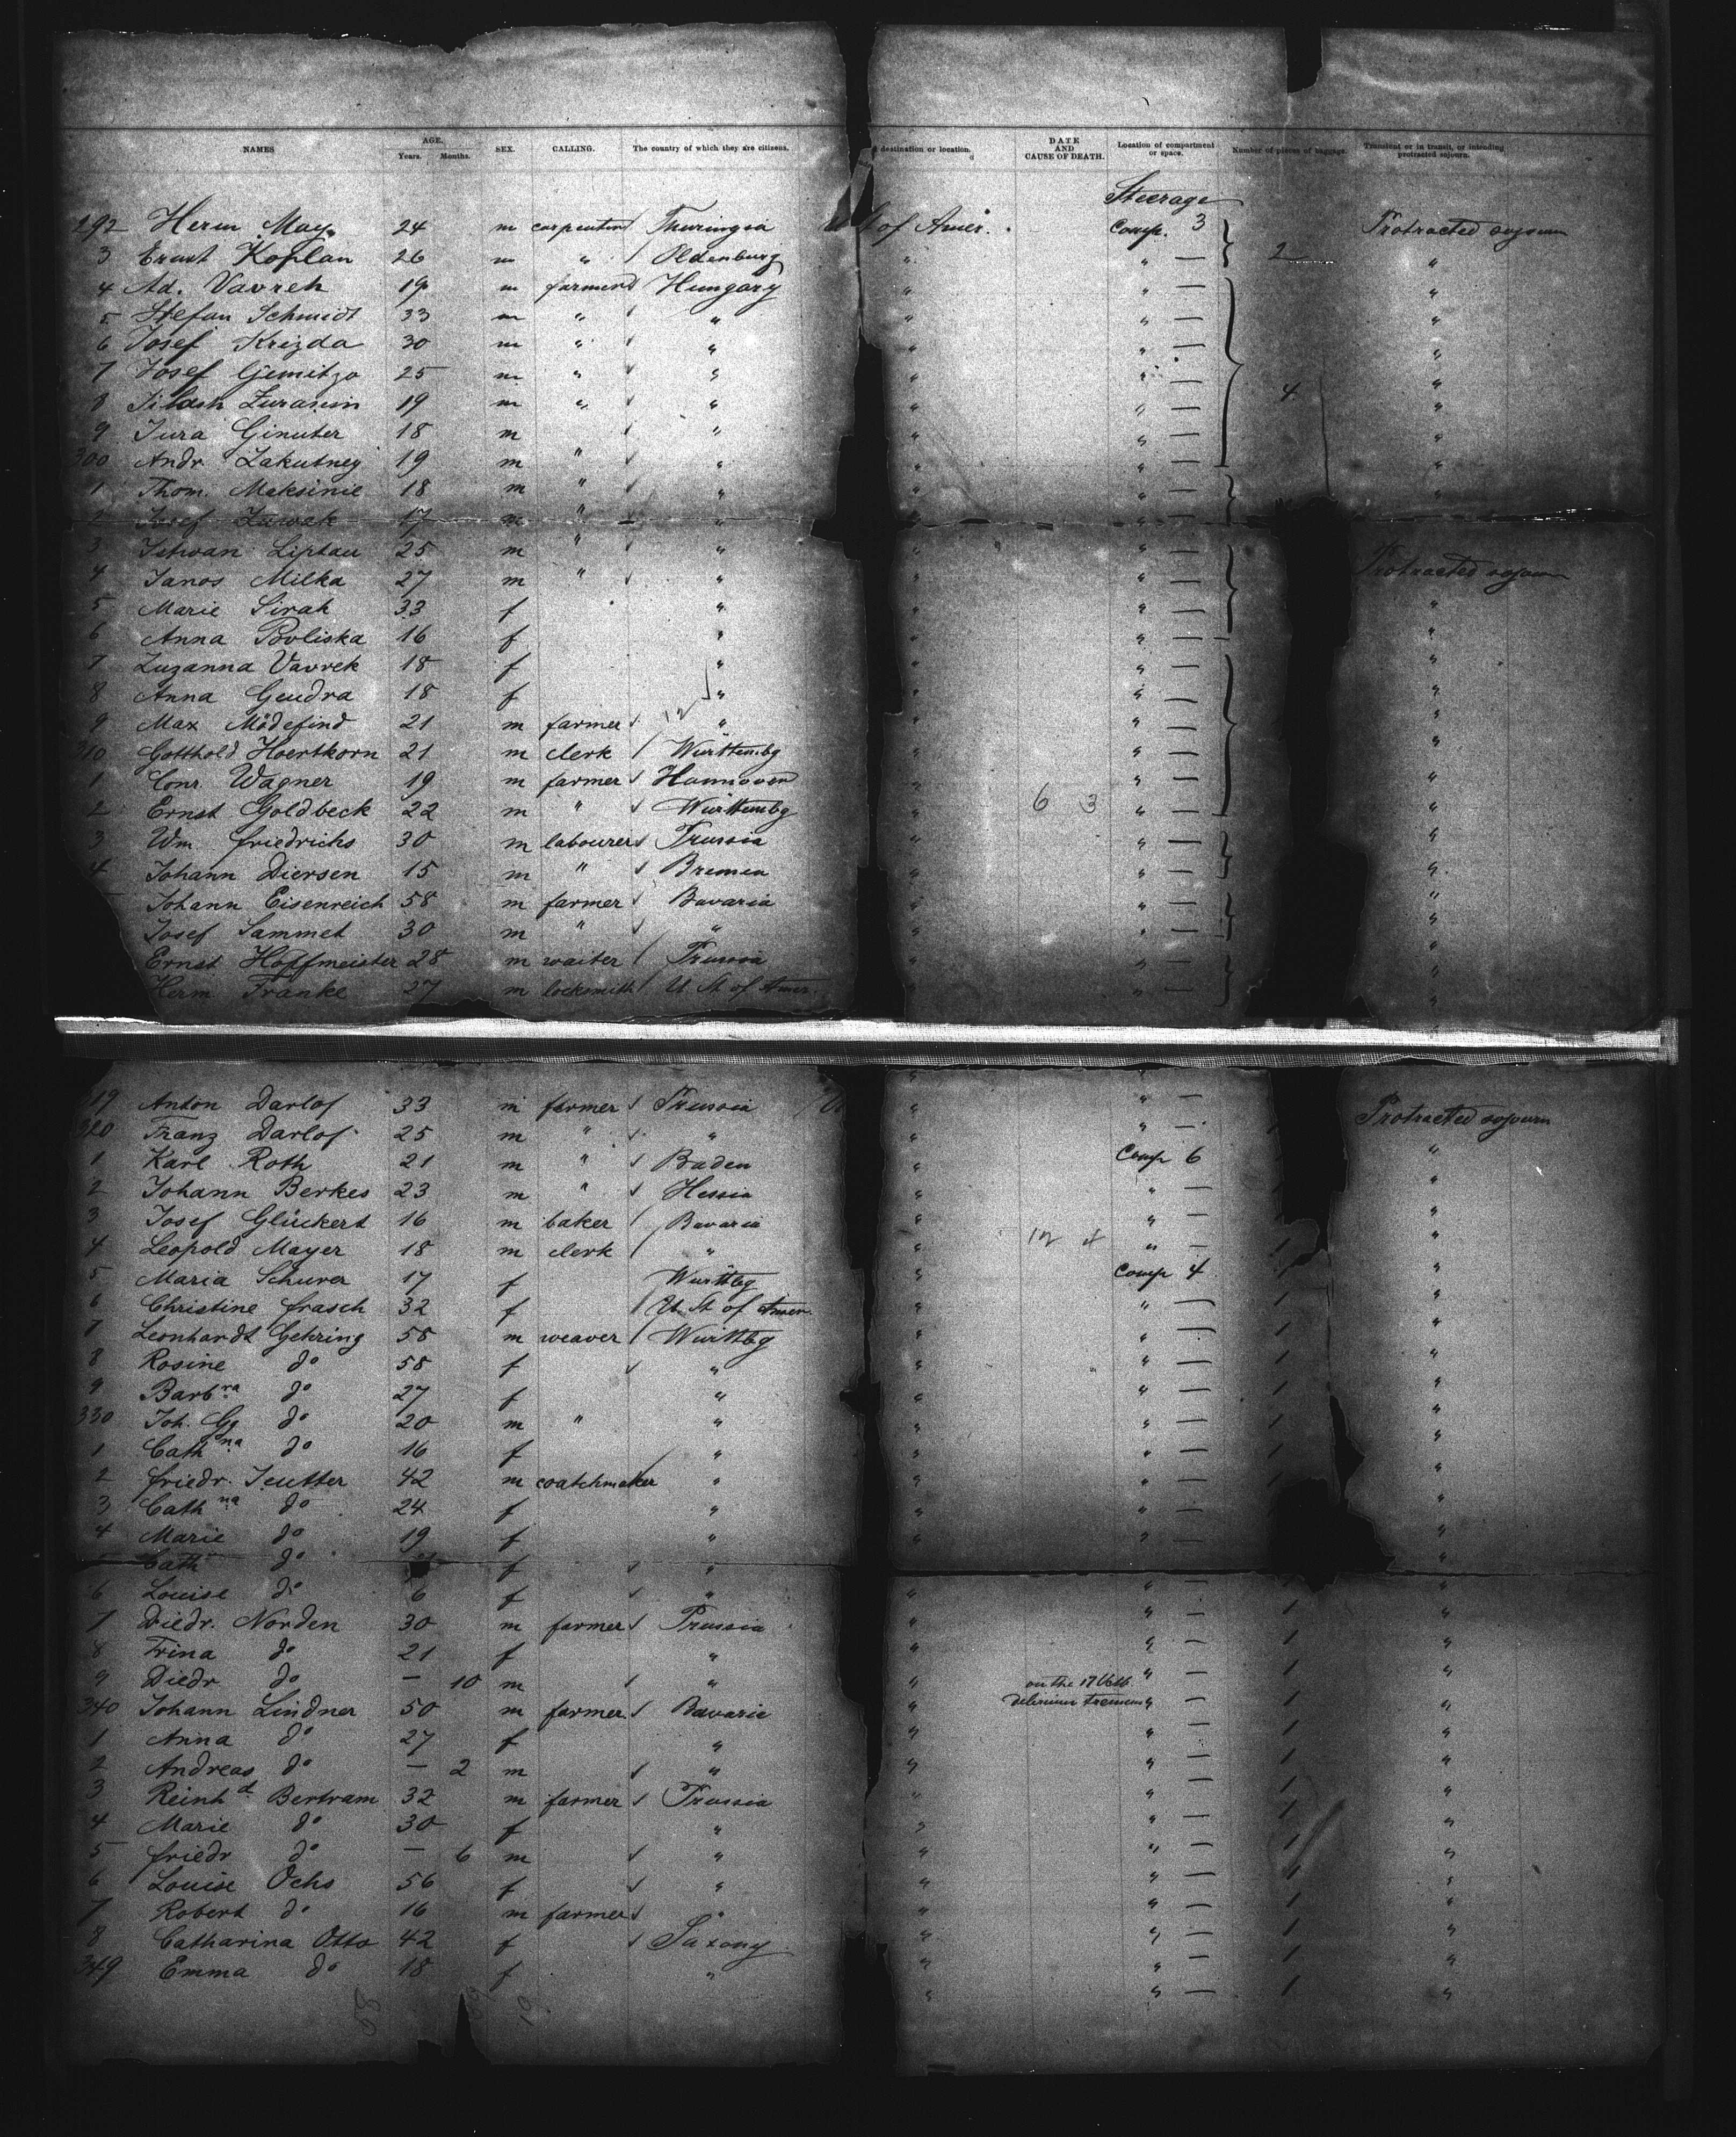 NAMES AGE. Years. Months. SEX. CALLING. The country of which they are citizens. destination or location. DATE AND CAUSE OF DEATH. Location of compartment or space. Number of pieces of baggage. Transient or in transit, or intending protracted sojourn.
Steerage
292 Herm May 24 m carpenter Thuringia U St of Amer. Comp. 3 Protracted sojourn
3 Ernst Koplan 26 m " Oldenburg " " — 2 "
4 Ad. Vavrek 19 m farmer Hungary " " — "
5 Stefan Schmidt 33 m " " " " — "
6 Josef Krizda 30 m " " " " — "
7 Josef 25 m " " " " — "
8 19 m " " " " — 4 "
9 Jura Ginuter 18 m " " " — "
300 Andr. Zakutney 19 m " " " " — "
1 Thom. Maksinie 18 m " " " " — "
2 Josef Zuwak 17 m " " " " —
3 Istwan Liptau 25 m " " " " —
4 Janos Milka 27 m " " " " — Protracted sojourn
5 Marie Sirah 33 f " " " — "
6 Anna Povliska 16 f " " " — "
7 Zuzanna Vavrek 18 f " " " — "
8 Anna Gendra 18 f " " " — "
9 Max Mödefind 21 m farmer " " " — "
310 Gotthold Hoertkorn 21 m clerk Württembg " " — "
1 Conr. Wagner 19 m farmer Hannover " " — "
2 Ernst Goldbeck 22 m " Württembg " 6 3 " — "
3 Wm. Friedrichs 30 m labourer Prussia " " — "
4 Johann Diersen 15 m " Bremen " " — "
Johann Eisenreich 58 m farmer Bavaria " " — "
Josef Sammet 30 m " " " " — "
Ernst Hoffmeister 28 m waiter Prussia " " — "
Herm Franke 27 m locksmith U. St of Amer. " " — "
319 Anton Darlof 33 m farmer Prussia " " — Protracted sojourn
320 Franz Darlof 25 m " " " " — 1
1 Karl Roth 21 m " Baden " Comp 6 "
2 Johann Berkes 23 m " Hessia " " — 1 "
3 Josef Glückert 16 m baker Bavaria " " — "
4 Leopold Mayer 18 m clerk " " 12 4 " — 1 "
5 Maria Schurer 17 f Württbg " Comp 4 1 "
6 Christine Frasch 32 f U. St of Amer. " " — 1 "
7 Leonhardt Gehring 58 m weaver Württbg " " — 1 "
8 Rosine do 58 f " " " — 1 "
9 Barbra do 27 f " " " — 1 "
330 Joh. Gg do 20 m " " " " — 1 "
1 Cathna do 16 f " " " — 1 "
2 Friedr. Jeutter 42 m coatchmaker " " " — 1 "
3 Cathna do 24 f " " " — "
4 Marie do 19 f " " " — "
5 Cath do f " "
6 Louise do 6 f " " " — "
7 Diedr. Norden 30 m farmer Prussia " " — 1 "
8 Trina do 21 f " " " — 1 "
9 Diedr do — 10 m " " on the 17 " — 1 "
340 Johann Lindner 50 m farmer Bavaria " delirium tremens " — 1 "
1 Anna do 27 f " " " — 1 "
2 Andreas do — 2 m " " " — 1 "
3 Reinhd Bertram 32 m farmer Prussia " " — 1 "
4 Marie do 30 f " " " — 1 "
5 Friedr do — 6 m " " " — 1 "
6 Louise Ochs 56 f " " " — 1 "
7 Robert do 16 m farmer " " " — 1 "
8 Catharina Otto 42 f Saxony " " — 1 "
349 Emma do 18 f " " " — 1 "